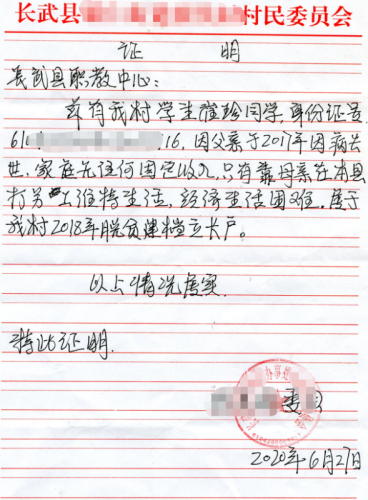 长武县 村民委员会
证 明
长武县职教中心:
兹有我村学生 珍同学,身份证号
61 16,因父亲于2017年因病去
世,家庭无任何固定收入,只有靠母亲在本县
打务工维持生活,经济生活困难,属于
我村2018年脱贫建档立卡户。
以上情况属实.
特此证明.
委
2020年6月27日